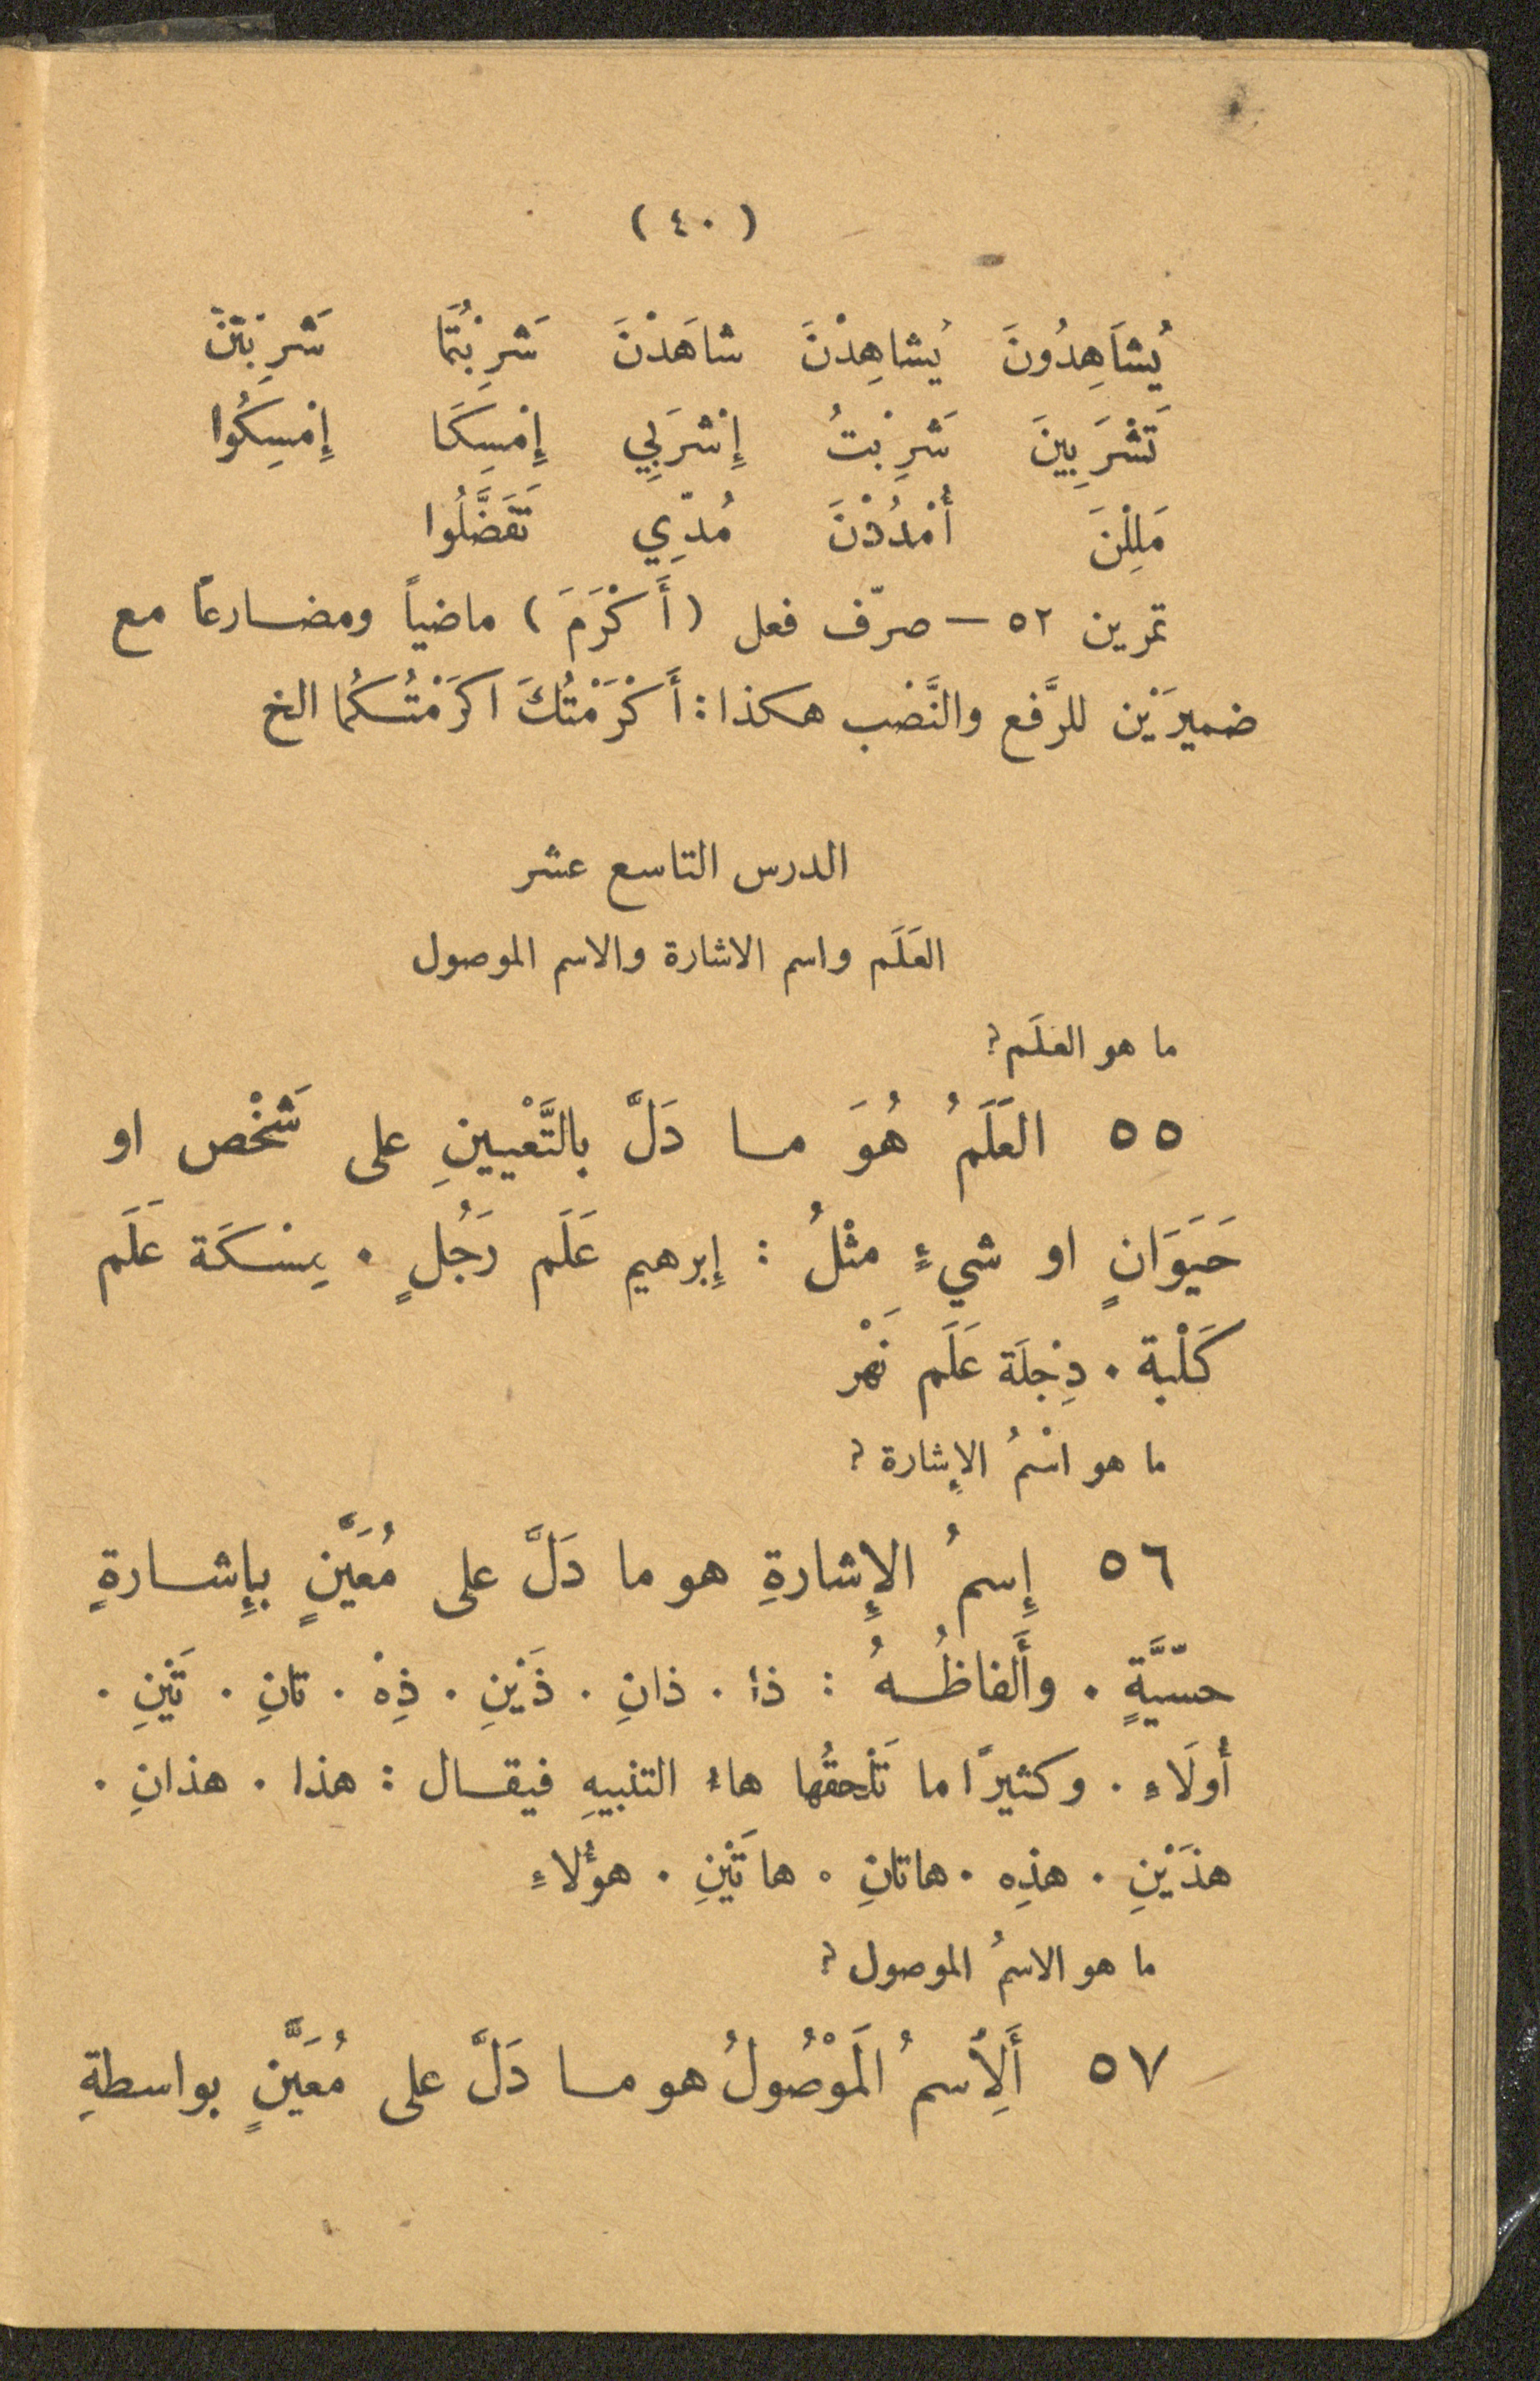 ( ٤٠ )
يُشاَهِدُونَ يُشاهِدْنَ شاهَدْنَ شَرِبْتُمَا شَرِبْتنَّ
تَشْرَبِينَ شَرِبْتُ إِشْرَبِي إِمْسِكَا إِمْسِكُوا
مَلِلْنَ أُمْدُدْنَ مُدِّي تَفَضَّلُوا
تمرين ٥٢ — صرّف فعل (أَكْرَمَ) ماضياً ومضارعاً مع
ضميرَيْن للرَّفع والنَّصْب هكذا: أَكْرَمْتُكَ اكرَمْتُكُما الخ
الدرس التاسع عشر
العَلَم واسم الاشارة والاسم الموصول
ما هو العَلَم؟
٥٥ العَلَمُ هُوَ ما دَلَّ بالتَّعْيينِ على شَخْص او
حَيَوَانٍ او شيءٍ مثْلُ : إبرهيم عَلَم رَجُلٍ . مِسْكَة عَلَم
كَلْبة . دِجْلَة عَلَم نَهْر
ما هو اسْمُ الإشارة ؟
٥٦ إِسمُ الإِشارةِ هو ما دَلَّ على مُعَيَّنٍ بإِشارةٍ
حسّيَّةٍ . وأَلفاظُهُ : ذا . ذانِ . ذَيْنِ . ذِهْ . تانِ . تَيْنِ .
أُولَاءِ . وكثيرًا ما تَلْحقُها هاءُ التنبيهِ فيقال : هذا . هذانِ .
هذَيْنِ . هذِه . هاتانِ . هاتَيْنِ . هؤُلاءِ
ما هو الاسمُ الموصول ؟
٥٧ أَلِاسمُ المَوْصُولُ هو ما دَلَّ على مُعَيَّنٍ بواسطةِ